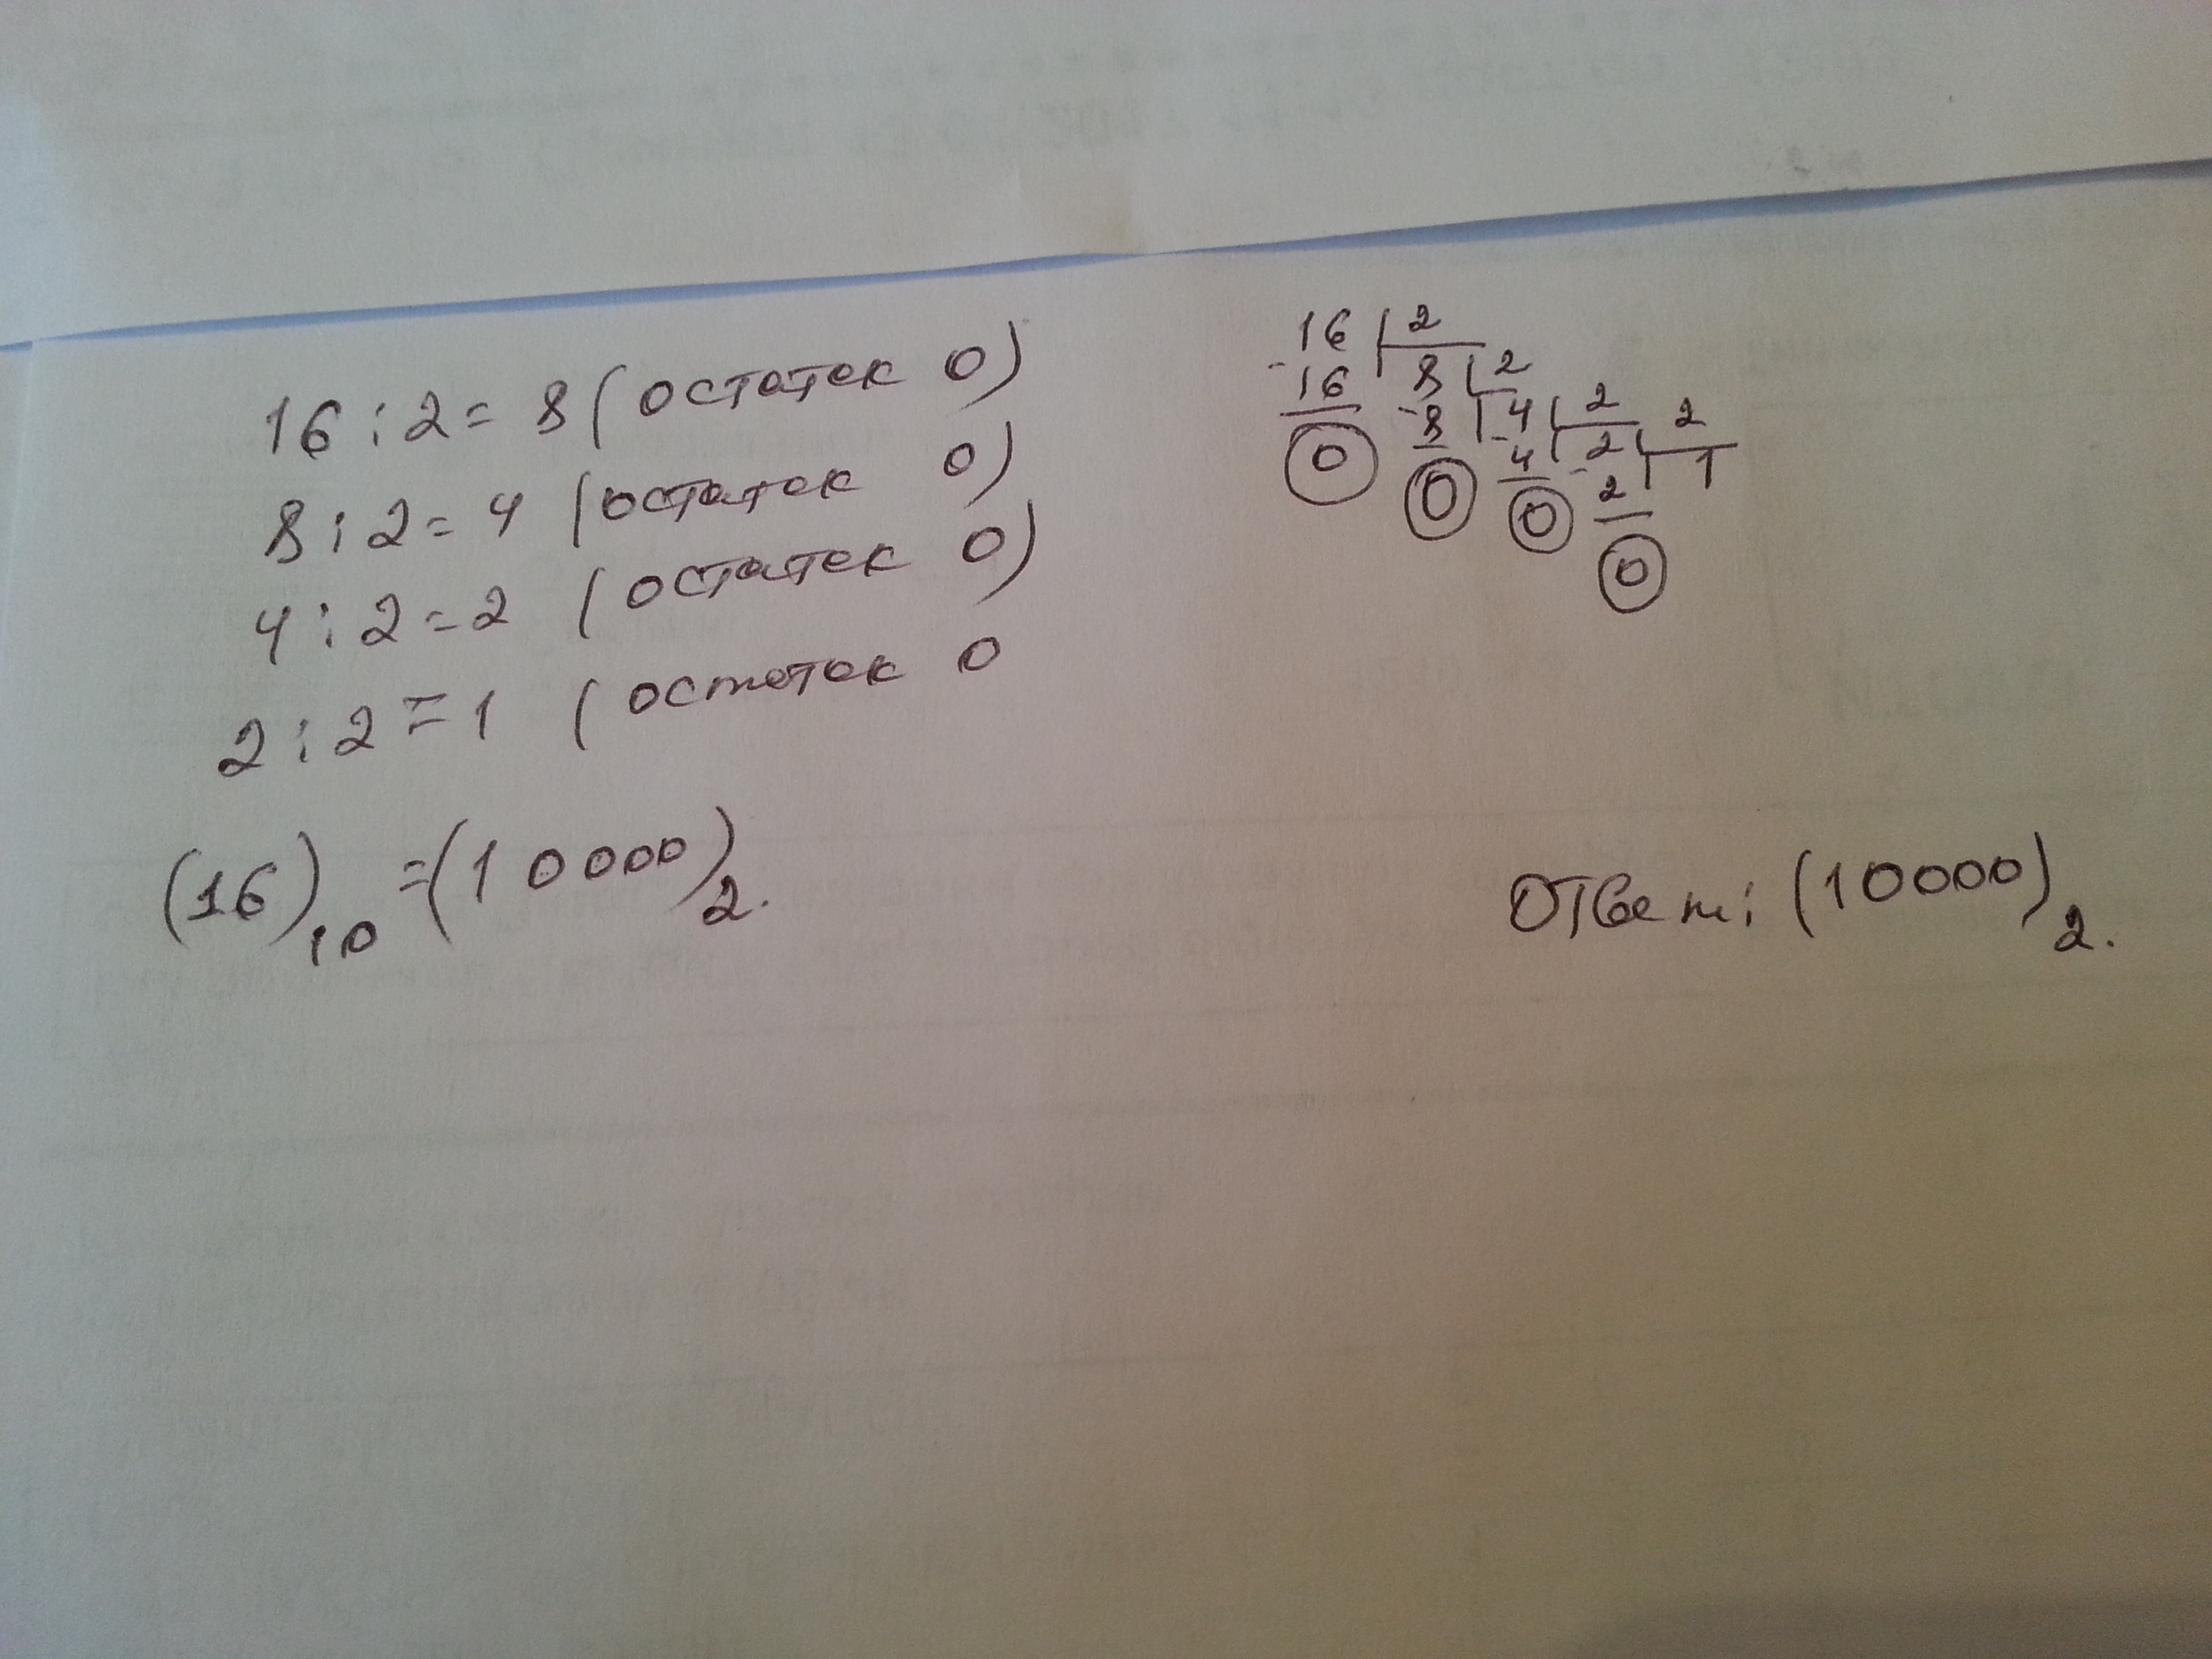 16 : 2 = 8 (остаток 0)
8 : 2 = 4 (остаток 0)
4 : 2 = 2 (остаток 0)
2 : 2 = 1 (остаток 0
(16)10 = (10000)2.
16 2
- 16 8 2
0 - 8 4 2 2
0 - 4 2 1
0 - 2
0
Ответ: (10000)2.